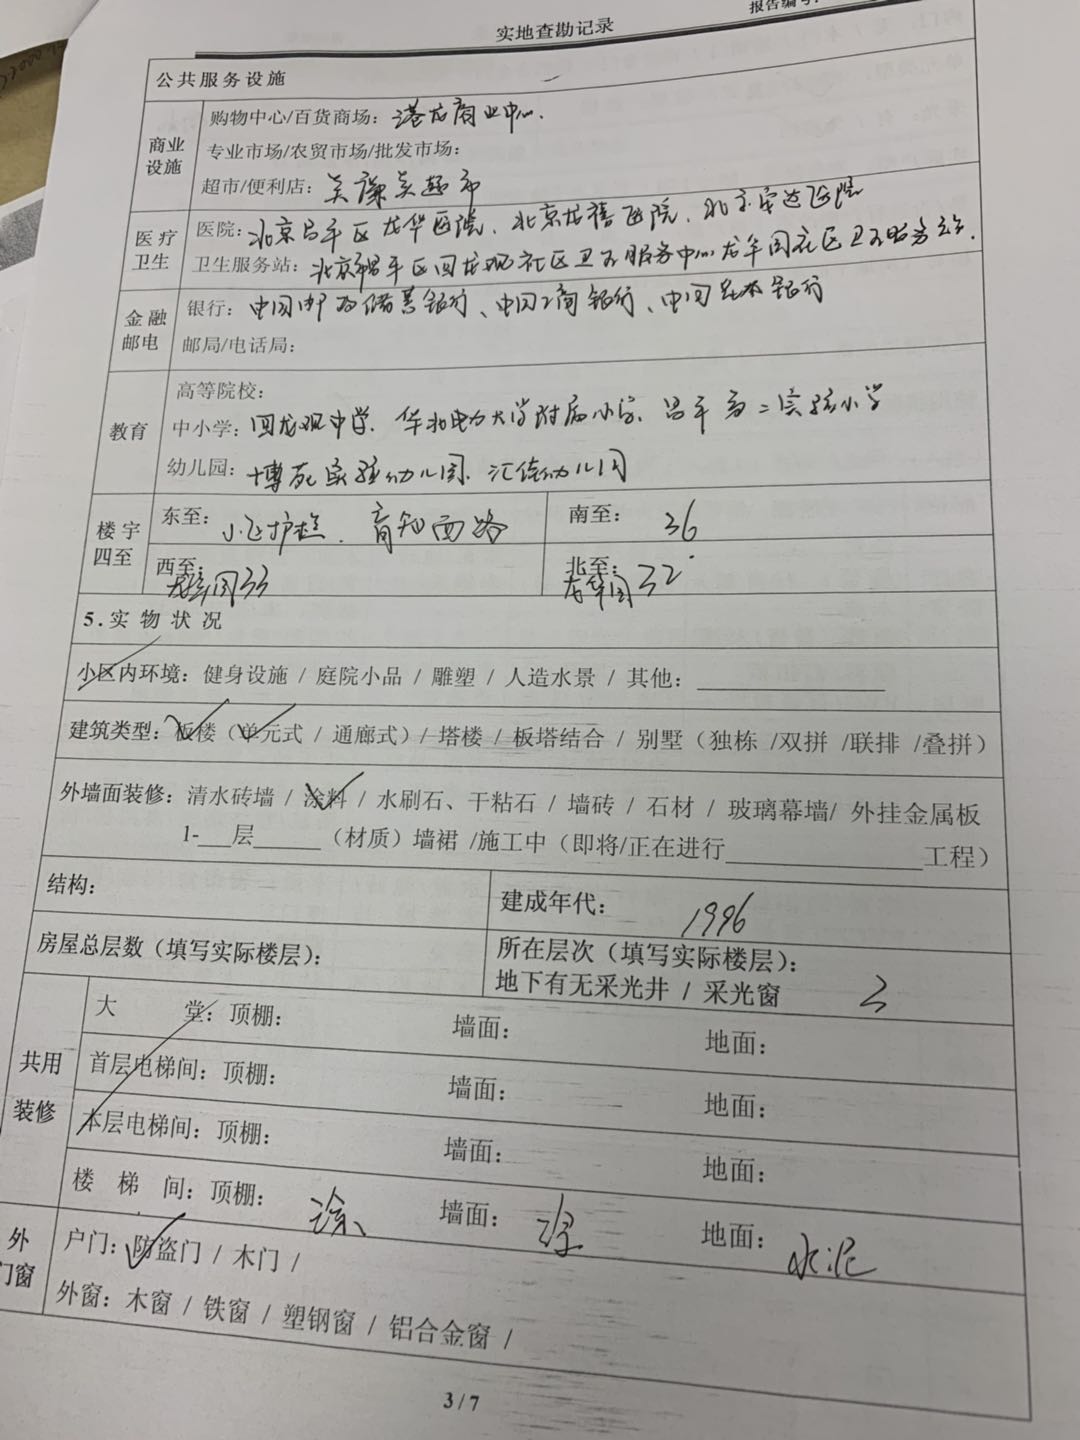 报告编号:
实地查勘记录
公共服务设施
商业设施
购物中心/百货商场：港龙商业中心.
专业市场/农贸市场/批发市场：
超市/便利店：美廉美超市
医疗卫生
医院：北京昌平区龙华医院、北京龙禧医院、北京安达医院
卫生服务站：北京昌平区回龙观社区卫生服务中心龙华园社区卫生服务站.
金融邮电
银行：中国邮政储蓄银行、中国工商银行、中国农业银行
邮局/电话局：
教育
高等院校：
中小学：回龙观中学、华北电力大学附属小学、昌平第二实验小学
幼儿园：博苑实验幼儿园、汇佳幼儿园
楼宇四至
东至：小区护栏、育知西路
南至：36
西至：龙华园33
北至：龙华园32
5.实物状况
小区内环境：健身设施 / 庭院小品 / 雕塑 / 人造水景 / 其他：
建筑类型：板楼（单元式 / 通廊式）/ 塔楼 / 板塔结合 / 别墅（独栋 /双拼 /联排 /叠拼）
外墙面装修：清水砖墙 / 涂料 / 水刷石、干粘石 / 墙砖 / 石材 / 玻璃幕墙/ 外挂金属板
1-___层______（材质）墙裙 /施工中（即将/正在进行__________________工程）
结构：
建成年代：1996
房屋总层数（填写实际楼层）：
所在层次（填写实际楼层）：
地下有无采光井 / 采光窗
共用装修
大堂：顶棚： 墙面： 地面：
首层电梯间：顶棚： 墙面： 地面：
本层电梯间：顶棚： 墙面： 地面：
楼梯间：顶棚：涂 墙面：涂 地面：水泥
外门窗
户门：防盗门 / 木门 /
外窗：木窗 / 铁窗 / 塑钢窗 / 铝合金窗 /
3/7